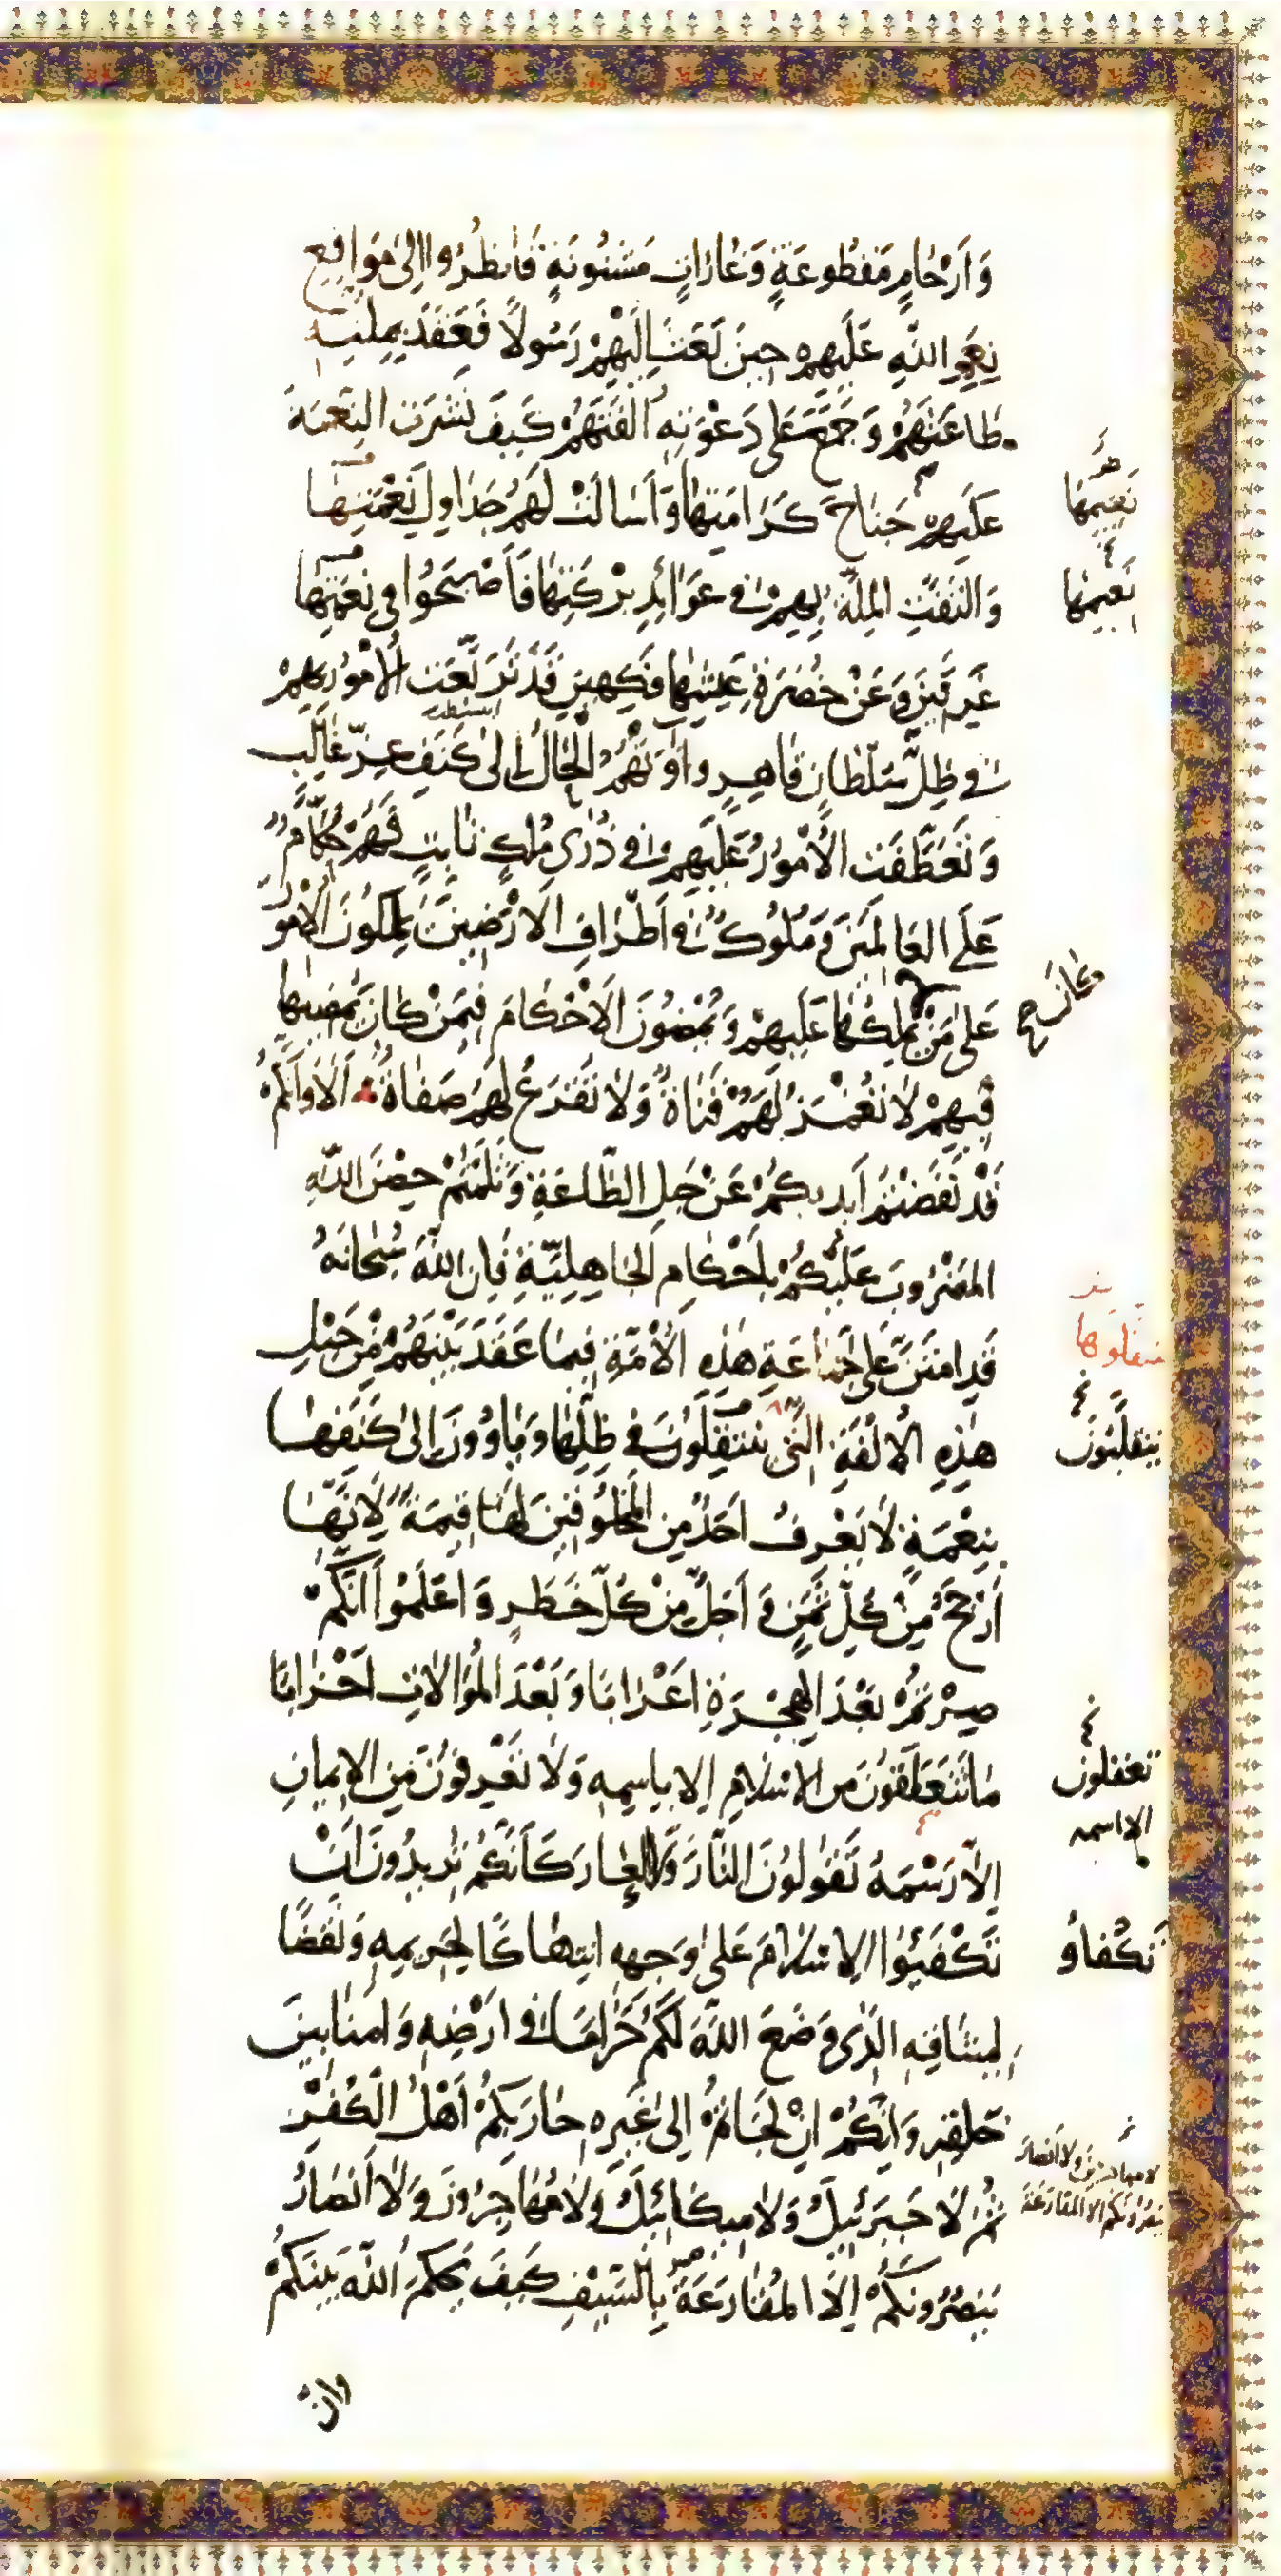 وَاَرْحَامٍ مَقْطُوعَةٍ وَغَارَاتٍ مَشْنُونَةٍ فَانْظُرُوا اِلٰی مَوَاقِعِ
نِعَمِ اللّٰهِ عَلَيْهِمْ حِينَ بَعَثَ اِلَيْهِمْ رَسُولًا فَعَقَدَ بِمِلَّتِهِ
طَاعَتَهُمْ وَجَمَعَ عَلٰی دَعْوَتِهِ اُلْفَتَهُمْ كَيْفَ نَشَرَتِ النِّعْمَةُ
عَلَيْهِمْ جَنَاحَ كَرَامَتِهَا وَاَسَالَتْ لَهُمْ جَدَاوِلَ نِعْمَتِهَا
نَعِيمِهَا
وَالْتَفَّتِ الْمِلَّةُ بِهِمْ فِي عَوَائِدِ بَرَكَتِهَا فَاَصْبَحُوا فِي نِعْمَتِهَا
نَعِيمِهَا
غَرِقِينَ وَعَنْ خُضْرَةِ عَيْشِهَا فَكِهِينَ قَدْ تَرَبَّعَتِ الْاُمُورُ بِهِمْ
فِي ظِلِّ سُلْطَانٍ قَاهِرٍ وَاٰوَتْهُمُ الْحَالُ اِلٰی كَنَفِ عِزٍّ غَالِبٍ
وَتَعَطَّفَتِ الْاُمُورُ عَلَيْهِمْ فِي ذُرٰی مُلْكٍ ثَابِتٍ فَهُمْ حُكَّامٌ
عَلَی الْعَالَمِينَ وَمُلُوكٌ فِي اَطْرَافِ الْاَرَضِينَ يَمْلِكُونَ الْاُمُورَ
عَلٰی مَنْ يَمْلِكُهَا عَلَيْهِمْ وَيُمْضُونَ الْاَحْكَامَ فِيمَنْ كَانَ يُمْضِيهَا
كَانَ صح
فِيهِمْ لَا تُغْمَزُ لَهُمْ قَنَاةٌ وَلَا تُقْرَعُ لَهُمْ صَفَاةٌ اَلَا وَاِنَّكُمْ
قَدْ نَفَضْتُمْ اَيْدِيَكُمْ عَنْ حَبْلِ الطَّاعَةِ وَثَلَمْتُمْ حِصْنَ اللّٰهِ
الْمَضْرُوبَ عَلَيْكُمْ بِاَحْكَامِ الْجَاهِلِيَّةِ فَاِنَّ اللّٰهَ سُبْحَانَهُ
قَدِ امْتَنَّ عَلٰی جَمَاعَةِ هٰذِهِ الْاُمَّةِ فِيمَا عَقَدَ بَيْنَهُمْ مِنْ حَبْلِ
هٰذِهِ الْاُلْفَةِ الَّتِي يَنْتَقِلُونَ فِي ظِلِّهَا وَيَأْوُونَ اِلٰی كَنَفِهَا
يَتَقَلَّبُونَ
بِنِعْمَةٍ لَا يَعْرِفُ اَحَدٌ مِنَ الْمَخْلُوقِينَ لَهَا قِيمَةً لِاَنَّهَا
اَرْجَحُ مِنْ كُلِّ ثَمَنٍ وَ اَجَلُّ مِنْ كُلِّ خَطَرٍ وَ اعْلَمُوا اَنَّكُمْ
صِرْتُمْ بَعْدَ الْهِجْرَةِ اَعْرَابًا وَبَعْدَ الْمُوَالَاتِ اَحْزَابًا
مَا تَتَعَلَّقُونَ مِنَ الْاِسْلَامِ اِلَّا بِاسْمِهِ وَلَا تَعْرِفُونَ مِنَ الْاِيمَانِ
تعقلون
الا اسمه
اِلَّا رَسْمَهُ تَقُولُونَ النَّارَ وَلَا الْعَارَ كَاَنَّكُمْ تُرِيدُونَ اَنْ
تُكْفِئُوا الْاِسْلَامَ عَلٰی وَجْهِهِ انْتِهَاكًا لِحَرِيمِهِ وَنَقْضًا
تَكْفَأُو
لِمِيثَاقِهِ الَّذِي وَضَعَ اللّٰهُ لَكُمْ حَرَامًا فِي اَرْضِهِ وَ اَمْنًا بَيْنَ
خَلْقِهِ وَاِنَّكُمْ اِنْ لَجَأْتُمْ اِلٰی غَيْرِهِ حَارَبَكُمْ اَهْلُ الْكُفْرِ
ثُمَّ لَا جَبْرَئِيلَ وَلَا مِيكَائِيلَ وَلَا مُهَاجِرُونَ وَلَا اَنْصَارُ
لا مهاجرين ولا انصار
ينصرونكم الا المقارعة
يَنْصُرُونَكُمْ اِلَّا الْمُقَارَعَةَ بِالسَّيْفِ حَتّٰی يَحْكُمَ اللّٰهُ بَيْنَكُمْ
وانّ